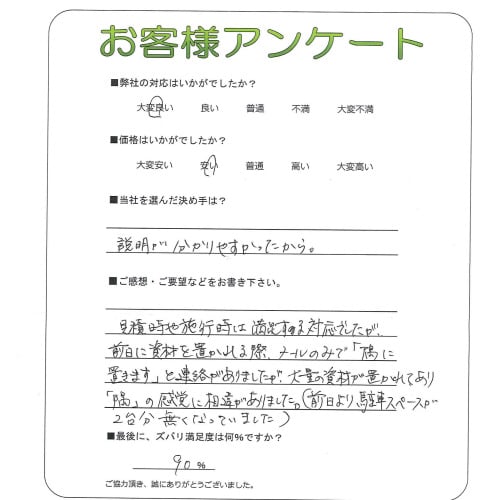 お客様アンケート
■弊社の対応はいかがでしたか？
大変良い 良い 普通 不満 大変不満
■価格はいかがでしたか？
大変安い 安い 普通 高い 大変高い
■当社を選んだ決め手は？
説明が分かりやすかったから。
■ご感想・ご要望などをお書き下さい。
見積時や施行時は満足する対応でしたが、
前日に資材を置かれる際、メールのみで「隅に
置きます」と連絡がありましたが、大量の資材が置かれてあり
「隅」の感覚に相違がありました。(前日より、駐車スペースが
2台分無くなっていました)
■最後に、ズバリ満足度は何%ですか？
90 %
ご協力頂き、誠にありがとうございました。